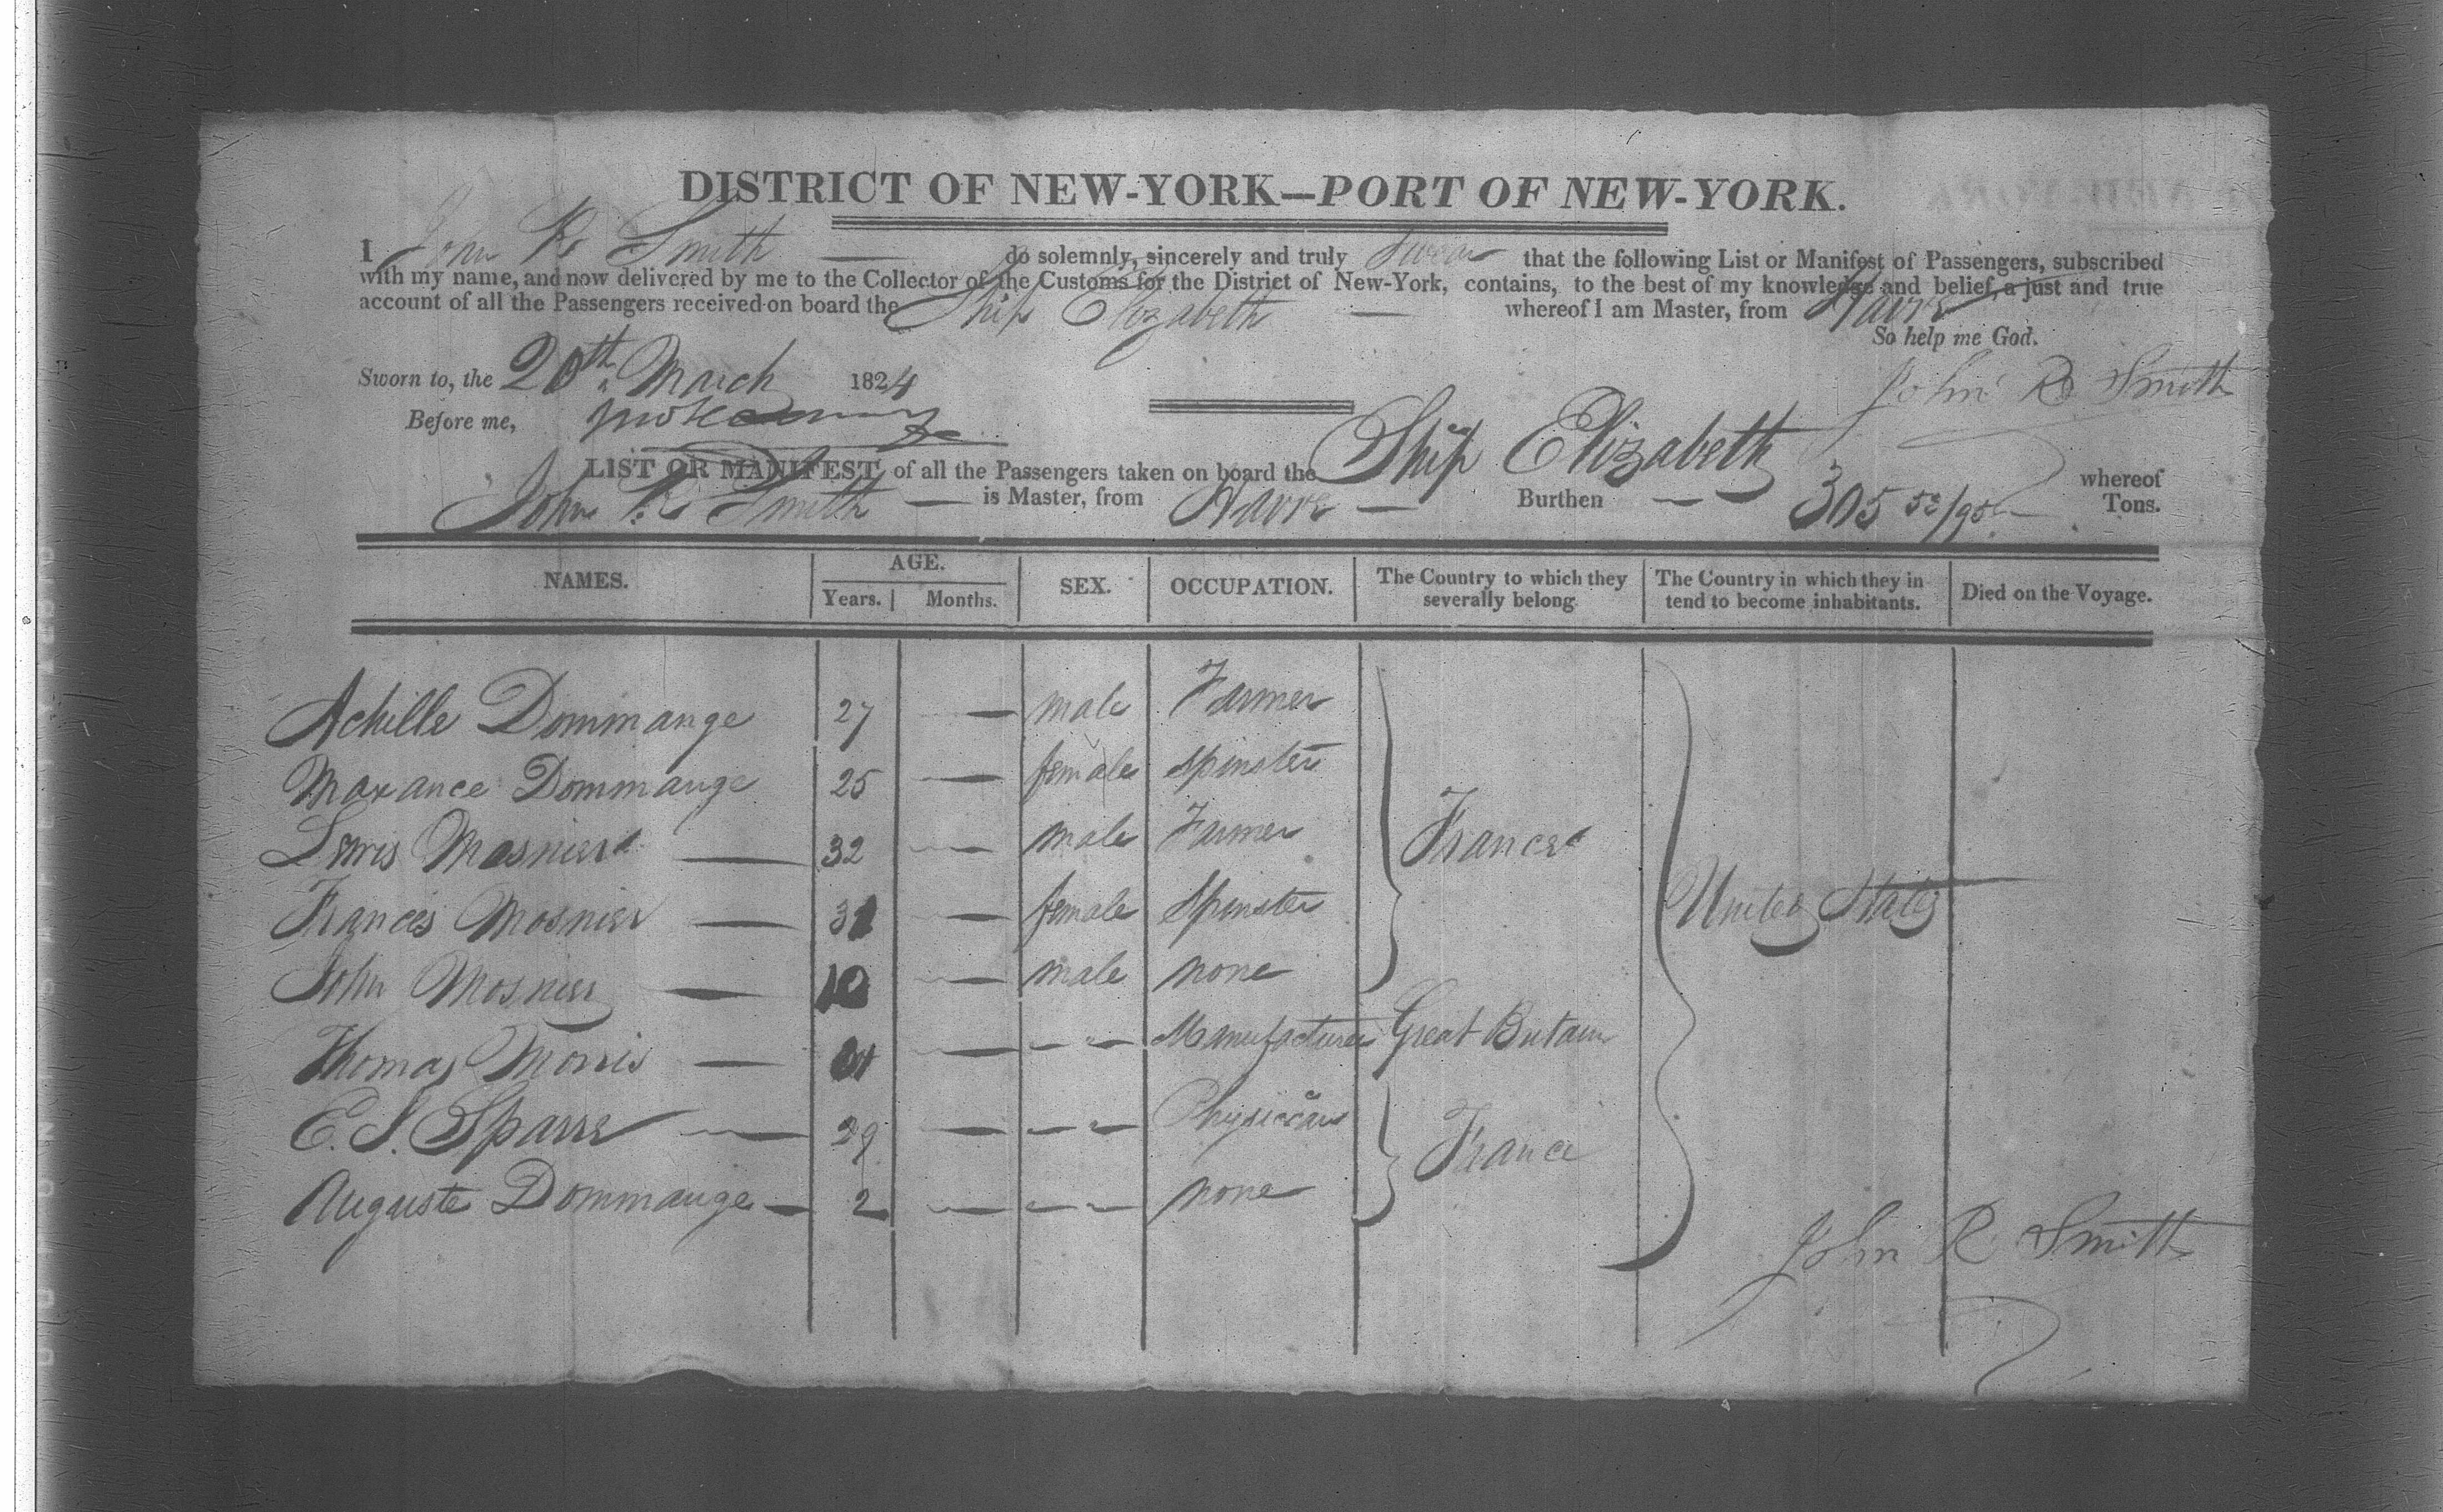 DISTRICT OF NEW-YORK—PORT OF NEW-YORK.
I John R. Smith — do solemnly, sincerely and truly swear that the following List or Manifest of Passengers, subscribed
with my name, and now delivered by me to the Collector of the Customs for the District of New-York, contains, to the best of my knowledge and belief, a just and true
account of all the Passengers received on board the Ship Elizabeth — whereof I am Master, from Havre
So help me God.
Sworn to, the 20th March 1824
John R Smith
Before me,
LIST OR MANIFEST of all the Passengers taken on board the Ship Elizabeth whereof
John R. Smith — is Master, from Havre — Burthen — 305 52/95 Tons.
NAMES. AGE. SEX. OCCUPATION. The Country to which they severally belong The Country in which they in tend to become inhabitants. Died on the Voyage.
Years. Months.
Achille Dommange 27 — male Farmer
Maxance Dommange 25 — female Spinster
Lewis Mosnier — 32 — male Farmer France
Francis Mosnier — 31 — female Spinster United States
John Mosnier — 10 — male none
Thomas Morris — — — — Manufacturer Great Britain
E. S. Sparre — 29 — — — Physician France
Auguste Dommange — 2 — — — none
John R Smith